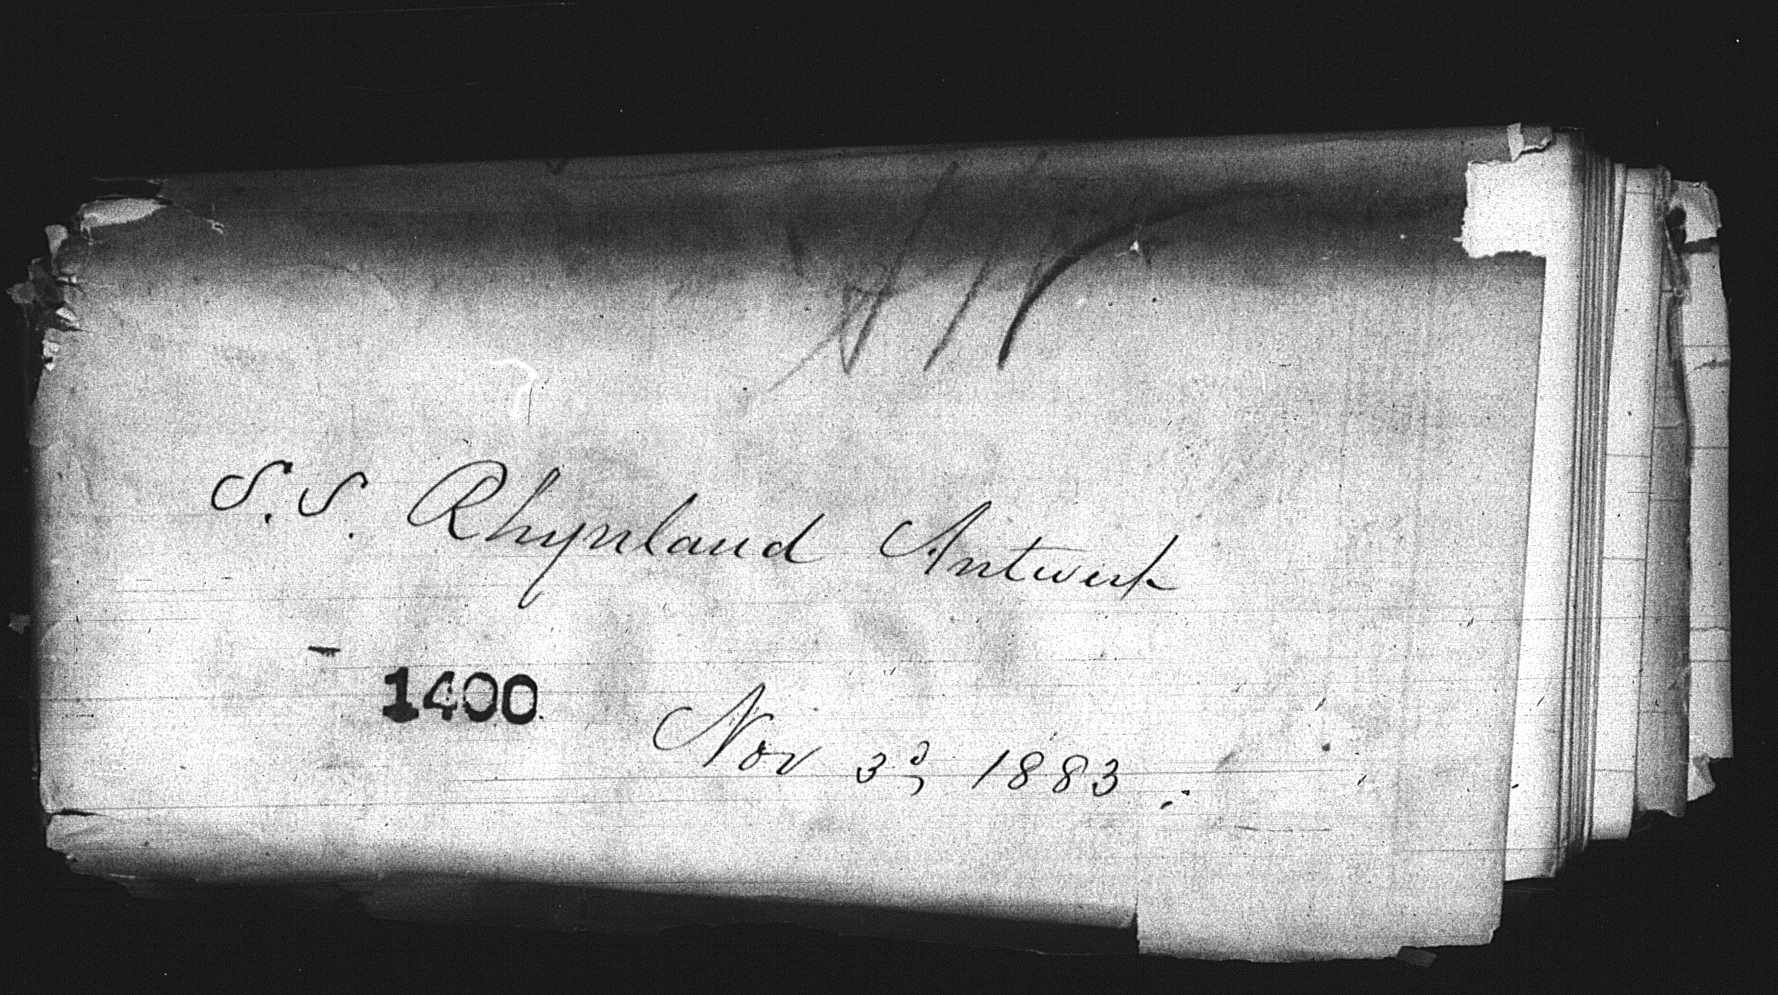 S.S. Rhynland Antwerp
1400
Nov 3d, 1883.